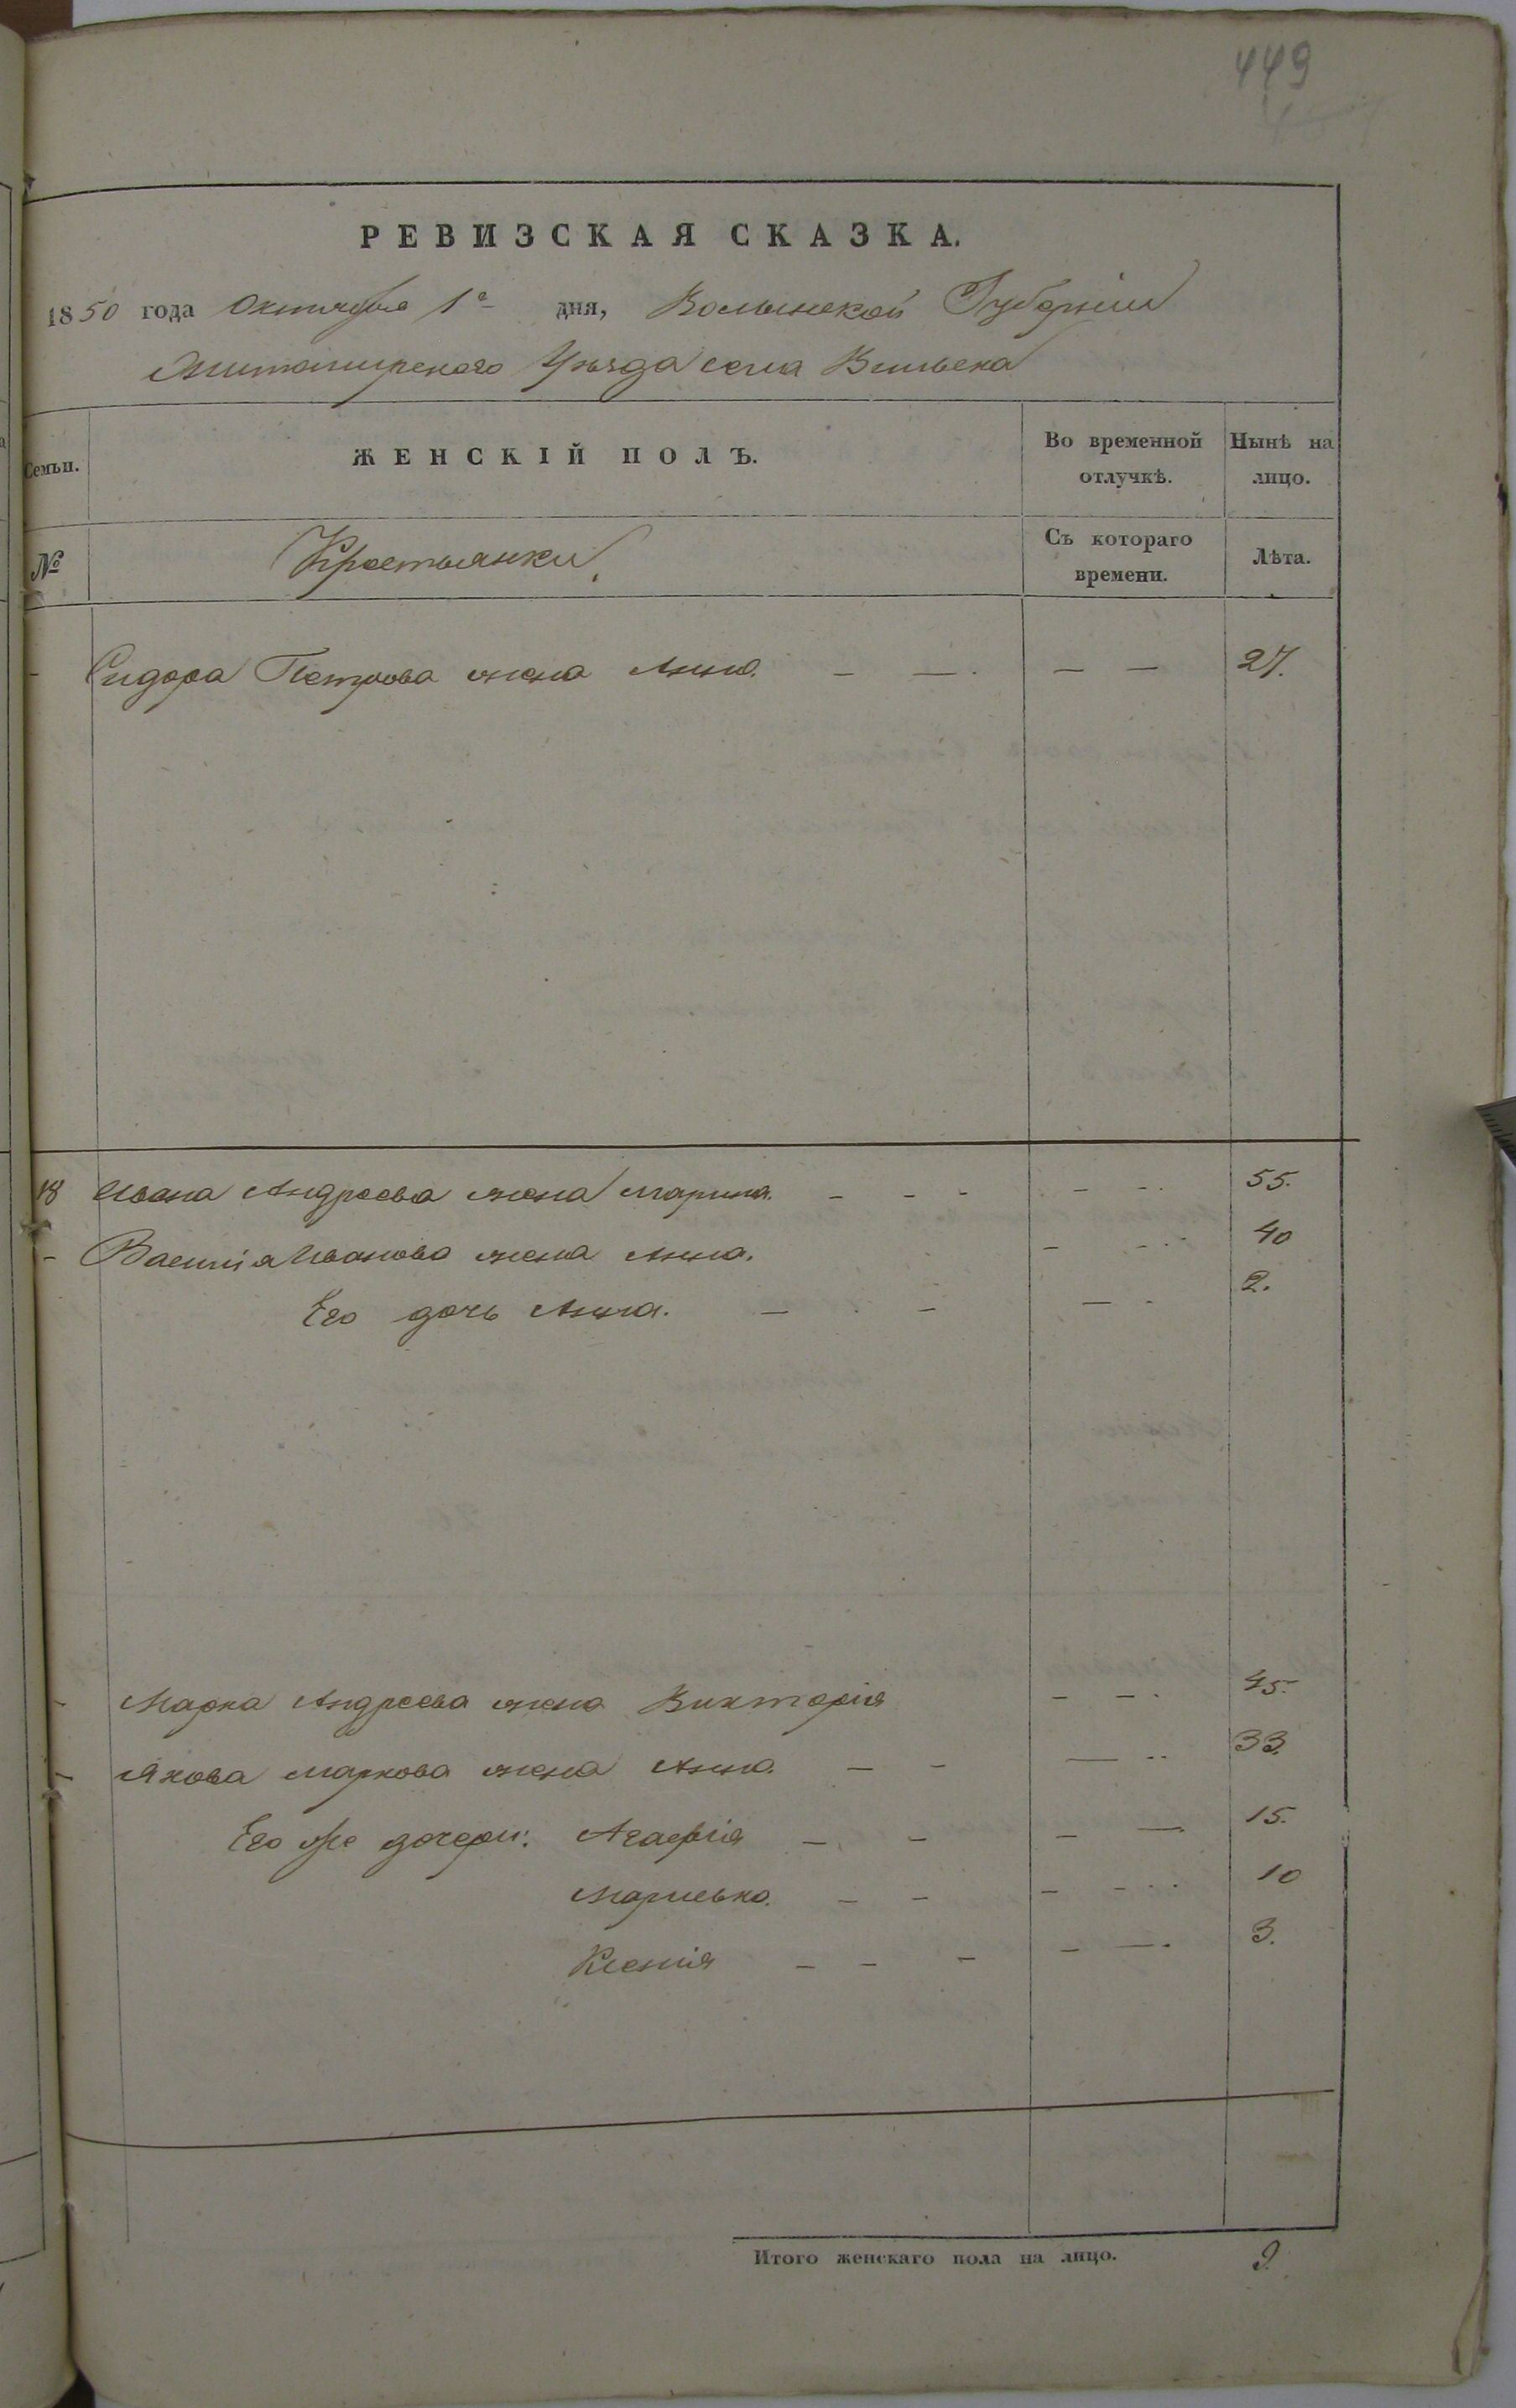 449
РЕВИЗСКАЯ СКАЗКА.
1850 года Октября 1го дня, Волынской Губерніи
Житомирского Уѣзда села Вильска
Семьи. ЖЕНСКІЙ ПОЛЪ. Во временной отлучкѣ. Нынѣ на лицо.
№ Крестьянки. Съ котораго времени. Лѣта.
- Сидора Петрова жена Анна. — —. — — 27.
18 Ивана Андреева жена Марина. - - - - -. 55.
- Василія Иванова жена Анна. - - . . 40
Его дочь Анна. — - — - 2.
- Марка Андреева жена Викторія - - . 45.
- Якова Маркова жена Анна. — - — .. 33.
Его же дочери: Агафія — - - — 15.
Марисько. - - - - . . 10
Ксенія - - - - —. 3.
Итого женскаго пола на лицо. 9.